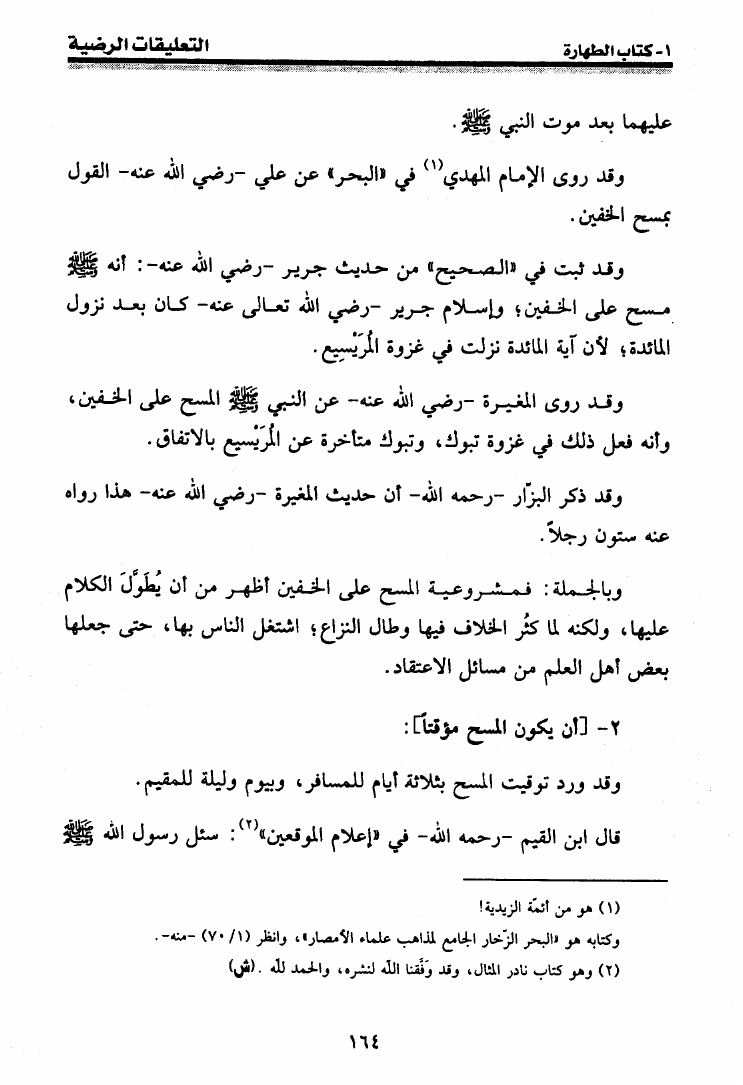 ١- كتاب الطهارة
التعليقات الرضية
عليهما بعد موت النبي ﷺ.
وقد روى الإمام المهدي(١) في «البحر» عن علي -رضي الله عنه- القول
بمسح الخفين.
وقد ثبت في «الصحيح» من حديث جرير -رضي الله عنه-: أنه ﷺ
مسح على الخفين؛ وإسلام جرير -رضي الله تعالى عنه- كان بعد نزول
المائدة؛ لأن آية المائدة نزلت في غزوة المُرَيْسِيع.
وقد روى المغيرة -رضي الله عنه- عن النبي ﷺ المسح على الخفين،
وأنه فعل ذلك في غزوة تبوك، وتبوك متأخرة عن المُرَيْسيع بالاتفاق.
وقد ذكر البزّار -رحمه الله- أن حديث المغيرة -رضي الله عنه- هذا رواه
عنه ستون رجلاً.
وبالجملة: فمشروعية المسح على الخفين أظهر من أن يُطَوَّلَ الكلام
عليها، ولكنه لما كثُر الخلاف فيها وطال النزاع؛ اشتغل الناس بها، حتى جعلها
بعض أهل العلم من مسائل الاعتقاد.
٢- [أن يكون المسح مؤقتاً]:
وقد ورد توقيت المسح بثلاثة أيام للمسافر، وبيوم وليلة للمقيم.
قال ابن القيم -رحمه الله- في «إعلام الموقعين»(٢): سئل رسول الله ﷺ
(١) هو من أئمّة الزيدية!
وكتابه هو «البحر الزّخار الجامع لمذاهب علماء الأمصار»، وانظر (١/ ٧٠) -منه-.
(٢) وهو كتاب نادر المثال، وقد وَفَّقنا الله لنشره، والحمد لله. (ش)
١٦٤